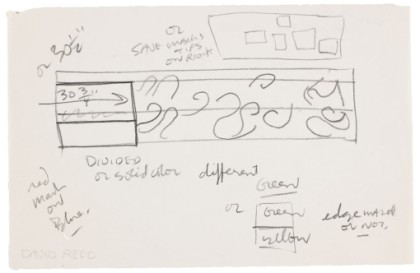 or
30½"
or
SAVE MARKS
TIPS
ON RIGHT
30 3/4"
DIVIDED
or solid color
different
Green
or
Green
yellow
edge mared
or NOT.
red
mark
on
Blue.
DAVID REED